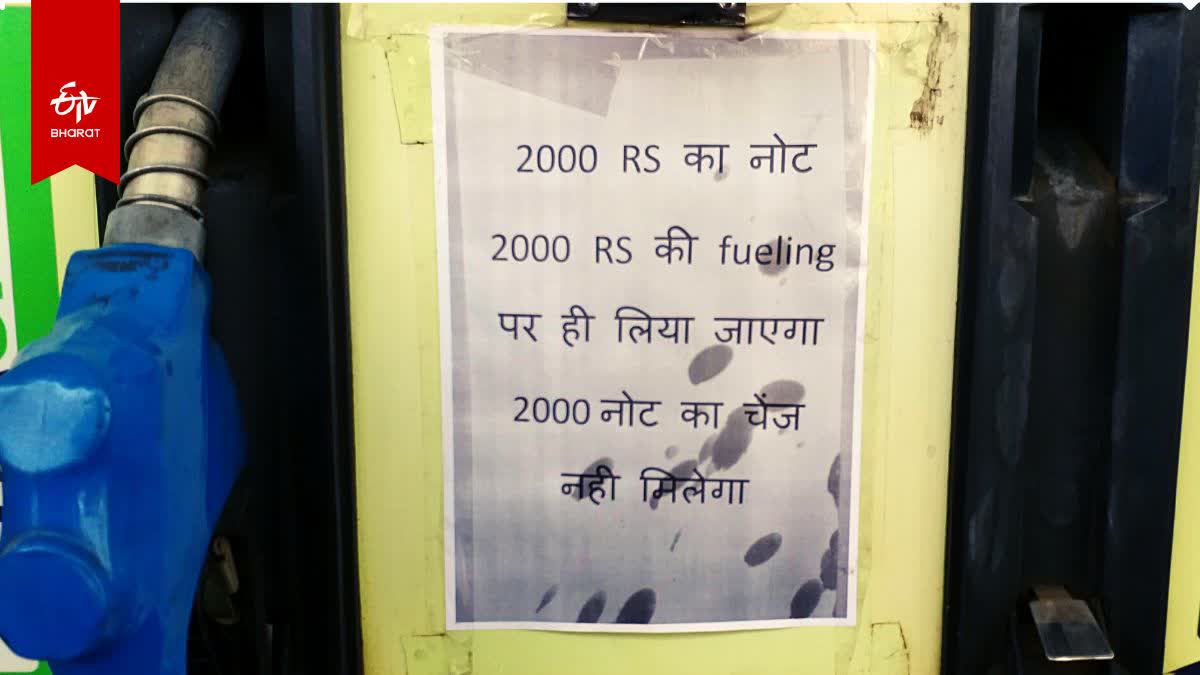 ETV
BHARAT
2000 RS का नोट
2000 RS की fueling
पर ही लिया जाएगा
2000 नोट का चेंज
नही मिलेगा